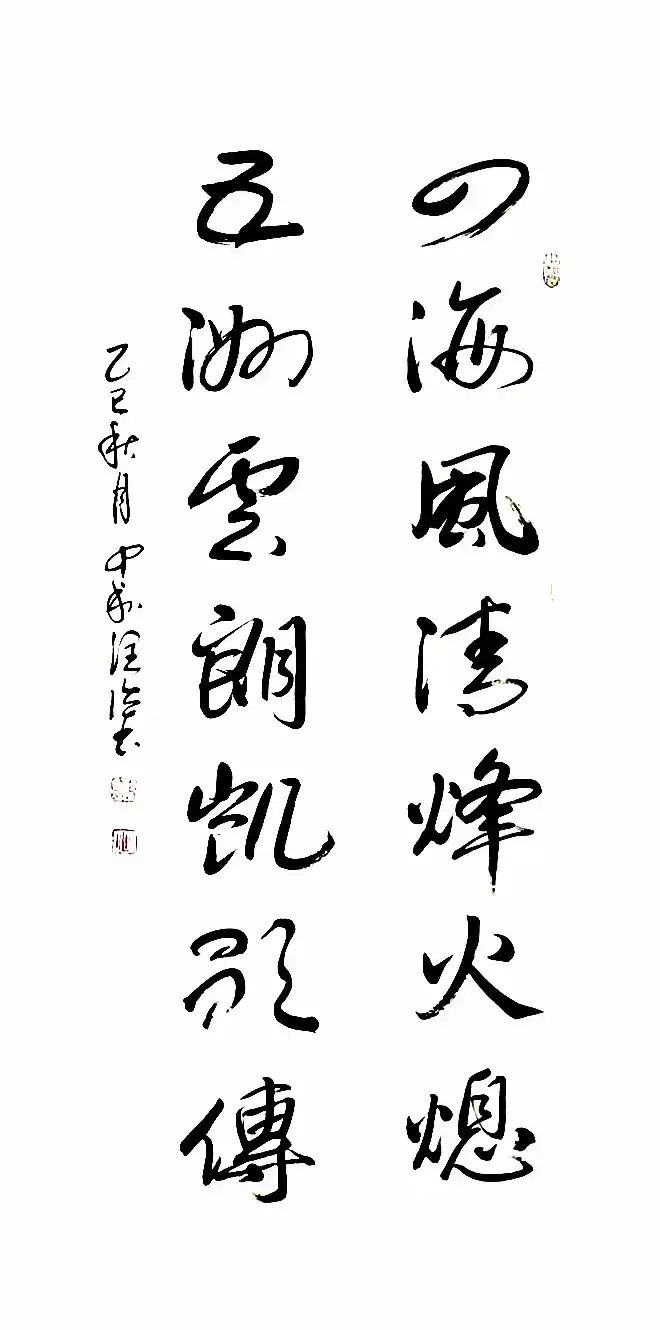 四海風清烽火熄
五洲雲朗凱歌傳
乙巳秋月 中成 汪